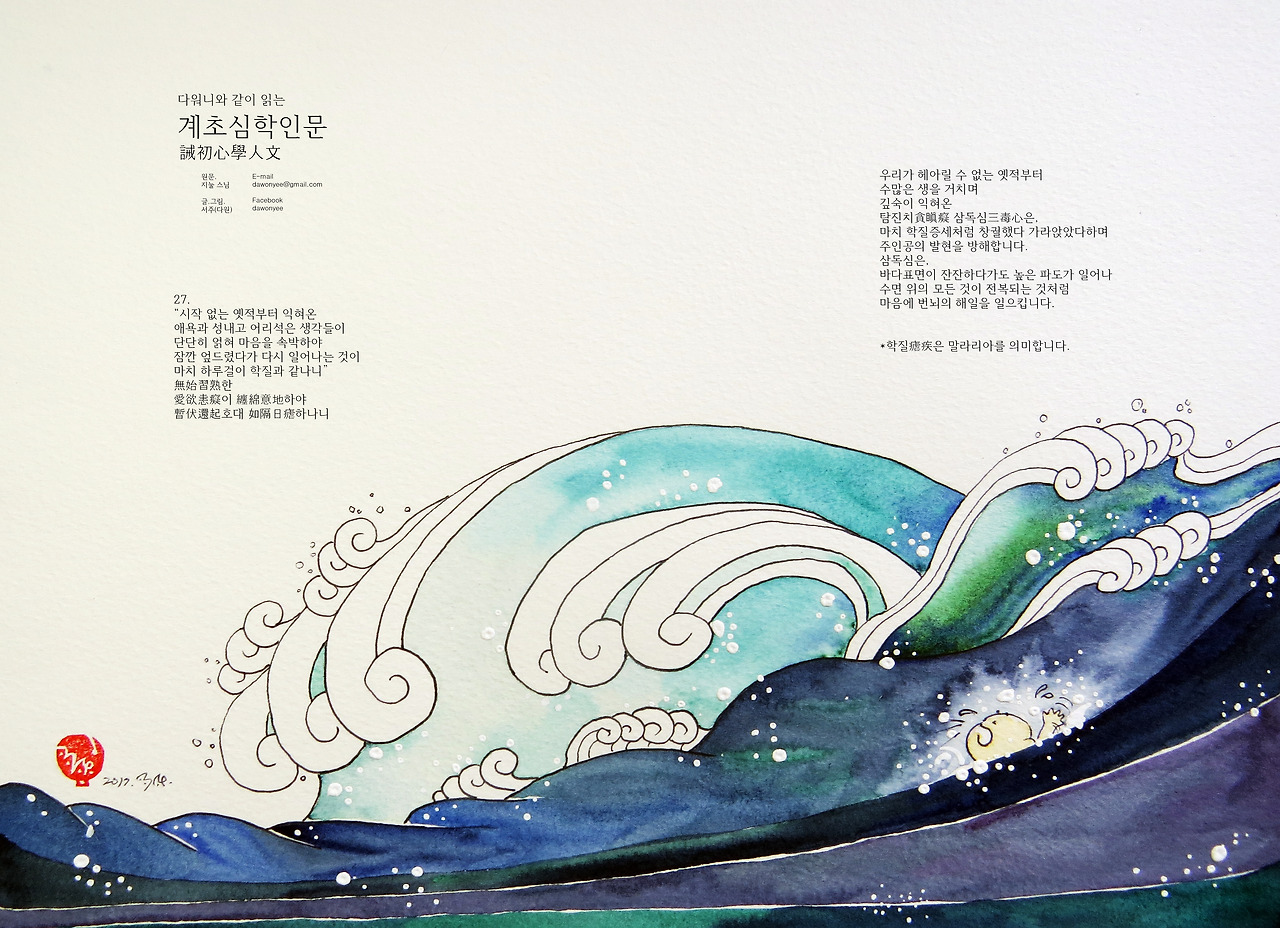 다워니와 같이 읽는
계초심학인문
誡初心學人文
원문.
지눌 스님
E-mail
dawonyee@gmail.com
글.그림.
서주(다원)
Facebook
dawonyee
27.
"시작 없는 옛적부터 익혀온
애욕과 성내고 어리석은 생각들이
단단히 얽혀 마음을 속박하야
잠깐 엎드렸다가 다시 일어나는 것이
마치 하루걸이 학질과 같나니"
無始習熟한
愛欲恚癡이 纏綿意地하야
暫伏還起호대 如隔日瘧하나니
우리가 헤아릴 수 없는 옛적부터
수많은 생을 거치며
깊숙이 익혀온
탐진치貪瞋癡 삼독심三毒心은,
마치 학질증세처럼 창궐했다 가라앉았다하며
주인공의 발현을 방해합니다.
삼독심은,
바다표면이 잔잔하다가도 높은 파도가 일어나
수면 위의 모든 것이 전복되는 것처럼
마음에 번뇌의 해일을 일으킵니다.
*학질瘧疾은 말라리아를 의미합니다.
2017.